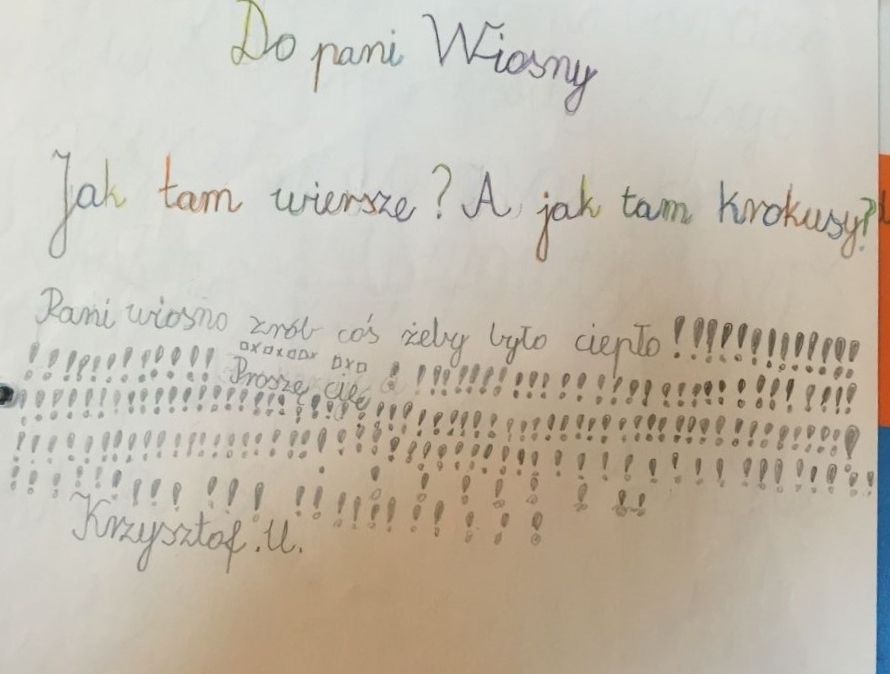 Do pani Wiosny
Jak tam wiersze? A jak tam krokusy?
Pani wiosno zrób coś żeby było ciepło!!!!!!!!!!!!!
!!!!!!!!!!!!! Proszę cię !!!!!!!!!!!!!!!!!!!!!!!!!!
!!!!!!!!!!!!!!!!!!!!!!!!!!!!!!!!!!!!!!!!!!!!!!!!!!
!!!!!!!!!!!!!!!!!!!!!!!!!!!!!!!!!!!!!!!!!!!!!!
!!!!!!!!!!!!!!!!!!!!!!!!!!!!
Krzysztof.U.